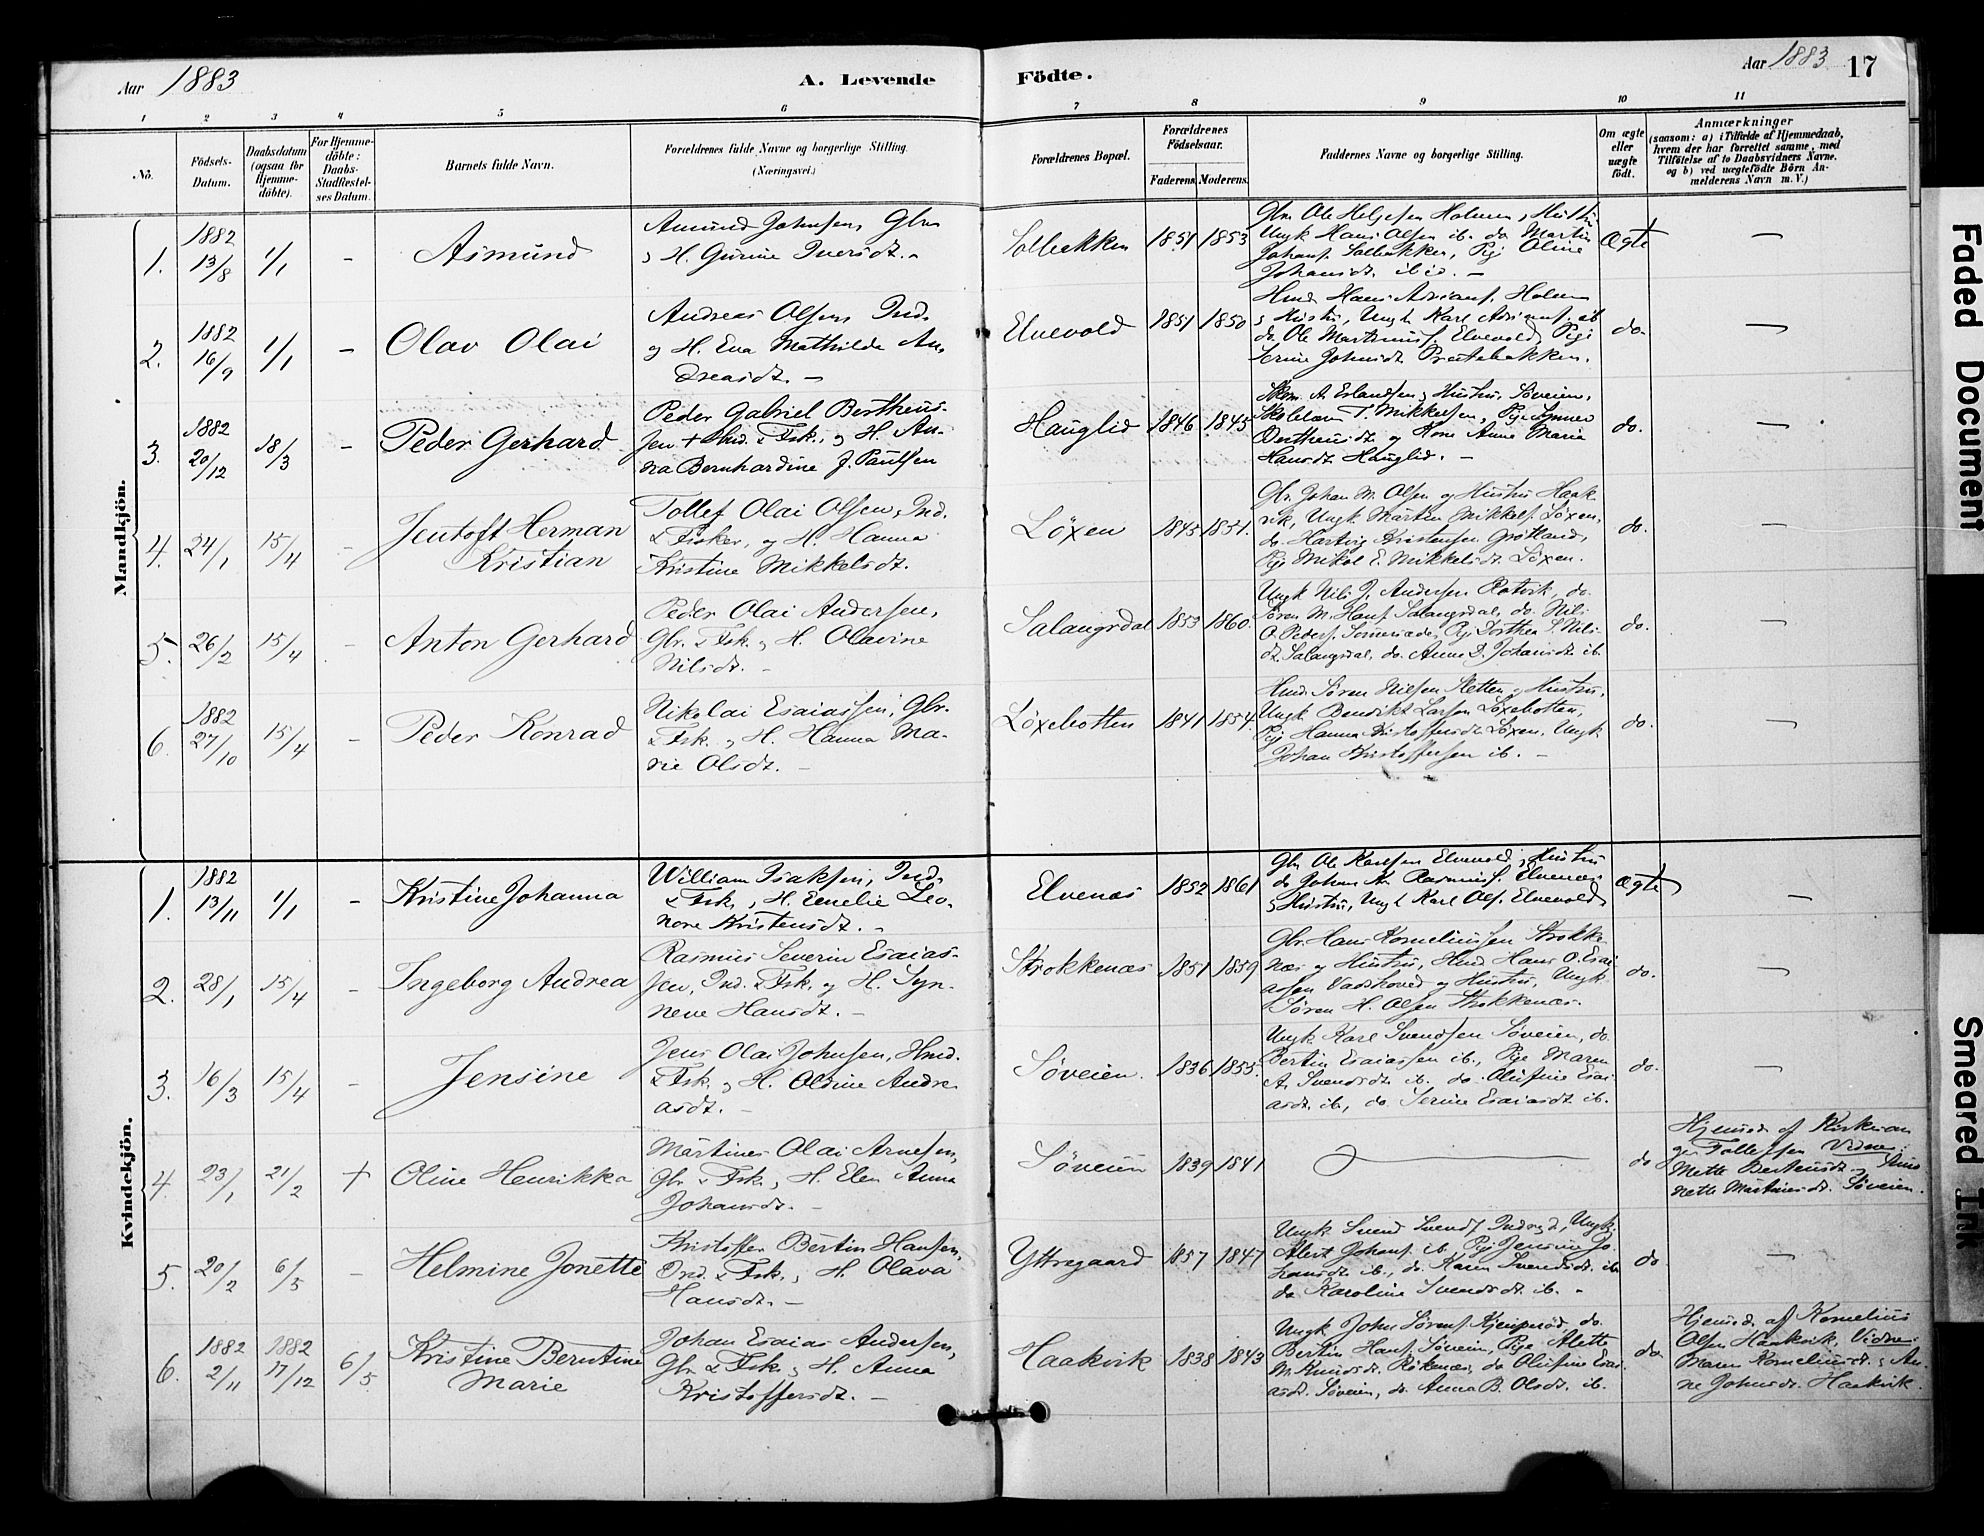 Aar 1883
A. Levende
Födte.
Aar 1883
17
1 2 3 4 5 6 7 8 9 10 11
No.
Födsels-
Datum.
Daabsdatum
(ogsaa for
Hjemme-
döbte).
For Hjemme-
döbte:
Daabs-
Stadfæstel-
ses Datum.
Barnets fulde Navn.
Forældrenes fulde Navne og borgerlige Stilling.
(Næringsvei.)
Forældrenes Bopæl.
Forældrenes
Födselsaar.
Faderens. Moderens.
Faddernes Navne og borgerlige Stilling.
Om ægte
eller
uægte
födt.
Anmærkninger
(saasom: a) i Tilfælde af Hjemmedaab,
hvem der har forrettet samme, med
Tilföielse af to Daabsvidners Navne.
og b) ved uægtefödte Börn An-
melderens Navn m. V.)
Mandkjön.
1.
1882
13/8
1/1
-
Asmund
Amund Johnsen Gbr
& H. Gurine Iversdt. -
Solbakken
1851
1853
Gbr Ole Helgesen Holmen & Hustru
Ungk Hans Olsen ib. do Martin
Johans. Solbakken, Pige Oline
Johansdt ibid. -
Ægte
-
2.
1882
16/9
1/1
-
Olav Olai
Andreas Olsen Ind.
og H. Eva Mathilde An-
dreasdt. -
Elvevold
1851
1850
Hmd Hans Adrians. Holmen
& Hustru, Ungk Karl Adrians. ib
do Ole Martinus. Elvevold, Pige
Serine Johnsdt Bratebakken.
do.
-
3.
1882
20/12
18/3
-
Peder Gerhard
Peder Gabriel Bertheus-
sen + Hmd. & Fsk., og H. An-
na Bernhardine f. Paulsen
Hauglid
1846
1845
A. Erlandsen & Hustru, Søveien,
T. Mikkelsen, Pige
Bertheusdt og Kone Anne Maria
Hansdt Hauglid. -
do.
-
4.
24/1
15/4
-
Jentoft Herman
Kristian
Tollef Olai Olsen, Ind.
& Fisker, og H. Hanna
Kristine Mikkelsdt.
Løxen
1845
1851.
Gbr. Johan M. Olsen og Hustru Haak-
vik, Ungk. Martin Mikkels. Løxen,
do. Hartvig Kristensen Grøtland,
Pige Mikol E. Mikkelsdt Løxen.
do.
-
5.
26/2
15/4
-
Anton Gerhard
Peder Olai Andersen,
Gbr. & Fsk. og H. Olavine
Nilsdt. -
Salangsdal
1853
1860.
Ungk Nils J. Andersen Rotvik, do.
Søren M. Hans. Salangsdal, do. Nils
O. Peders. Pige Dorthea S. Nils-
dt. Salangsdal, do. Anne D. Johansdt ib.
do.
-
6.
1882
27/10
15/4
-
Peder Konrad
Nikolai Esaiassen, Gbr.
& Fsk. og H. Hanna Ma-
rie Olsdt. -
Løxebotten
1841
1854.
Hmd Søren Nilsen Sletten og Hustru,
Ungk Benedikt Larsen Løxebotten,
Pige Hanna Kristoffersdt Løxen, Ungk
Johan Kristoffersen ib. -
do.
-
Kvindekjön.
1.
1882
13/11
1/1
-
Kristine Johanna
William Isaksen, Ind.
& Fsk., H. Emelie Leo-
nore Kristensdt. -
Elvenæs
1852
1861
Gbr Ole Karlsen Elvevold & Hustru
do Johan Kr. Rasmus. Elvenæs
& Hustru, Ungk Karl Ols. Elvevold
Ægte
-
2.
28/1
15/4
-
Ingeborg Andrea
Rasmus Severin Esaias-
sen, Ind. & Fsk., og H. Syn-
neve Hansdt. -
Strokkenæs
1851
1859
Gbr. Hans Korneliussen Strokke-
næs og Hustru, Hmd Hans O. Esai-
assen Vadshoved og Hustru, Ungk
Søren H. Olsen Strokkenæs.
do.
-
3.
16/3
15/4
-
Jensine
Jens Olai Johnsen, Hmd.
& Fsk., og H. Oldine Andre-
asdt. -
Søveien.
1836
1855.
Ungk Karl Svendsen Søveien, do.
Bertin Esaiassen ib., Pige Maren
A. Svendsdt ib. do. Olufine Esai-
asdt ib., do Serine Esaiasdt ib.
do.
-
4.
23/1
21/2
+
Oline Henrikka
Martines Olai Arnesen,
Gbr & Fsk., H. Elen Anna
Johansdt. -
Søveien
1839
1841
do
Hjemd af Kirkesan-
ger Tollefsen Vidner:
Mette Bertensdt. &
nette Martinesdt. Søveien.
5.
20/2
6/5
-
Helmine Jonette
Kristoffer Bertin Hansen,
Ind. & Fsk., H. Olava
Hansdt. -
Yttregaard
1857
1847
Ungk Svend Svends. Indregd, Ungk
Albert Johans. ib Pige Jensine Jo-
hansdt ib., do. Karen Svendsdt. ib.
do Karoline Svendsdt ib. -
do.
-
6.
1882
2/11
1882
17/12
6/5
Kristine Berntine
Marie
Johan Esaias Andersen,
Gbr & Fsk., H. Anna
Kristoffersdt. -
Haakvik
1838
1843
Ungk John Sørens. do.
Bertin Hans. Søveien, Pige Alette
M. Knudsdt. Røkenæs, do Olufine Esai-
asdt. Søveien, do. Anna B. Olsdt. ib.
do.
Hjemd. af Kornelius
Olsen Haakvik, Vidne:
Maren Korneliusdt. & An-
ne Johnsdt. Haakvik.
Faded Document
Smeared Ink